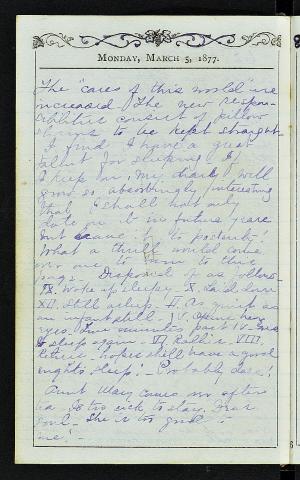 MONDAY, MARCH 5, 1877.
The "cares of this world" are
increased. The new respon-
sibilities consist of pillow
shams to be kept straight.
I find I have a great
talent for sleeping. If
I keep on, my diary will
grow so absorbingly interesting
that I shall not only
dote on it in future years
but leave it to posterity!
What a thrill would come
over one to turn to this
page. Disposed of as follows-
IX. Woke up sleepy. X. Laid down
XII. Still asleep. II. As quiet as
an infant still. IV. Opened her
eyes. Five minutes past IV. Gone
to sleep again. VI. Rallies. VIII.
Retires. hopes she'll have a good
night's sleep! - Probably does!
Aunt Mary comes over after
tea. Is too sick to stay. Dear
soul. She is too good to
me! -